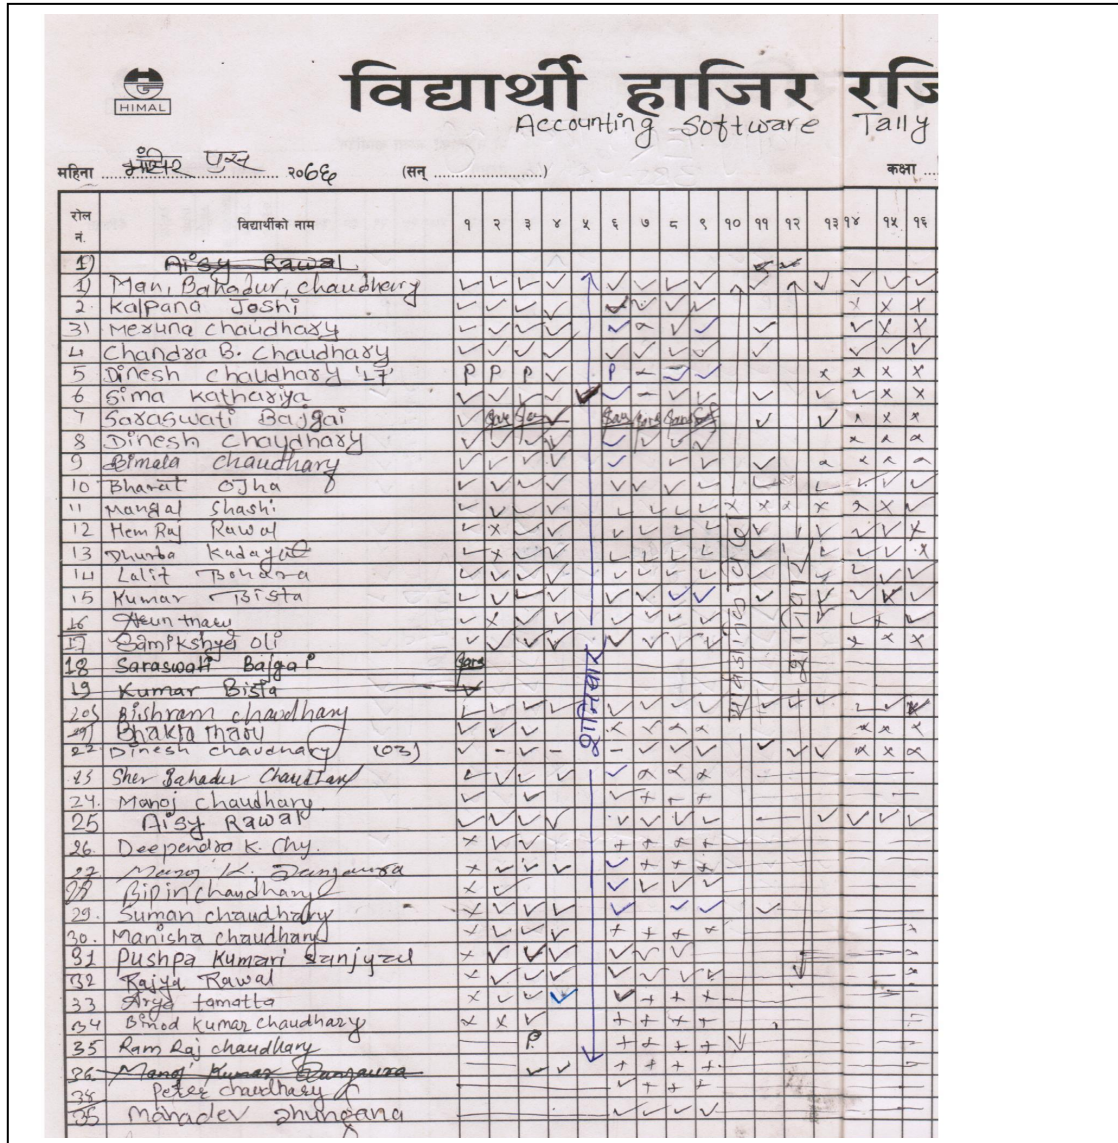 HIMAL
विद्यार्थी हाजिर रजि
Accounting Software Tally
महिना मंसिर पुस २०६६ (सन् ) कक्षा
रोल नं. विद्यार्थीको नाम १ २ ३ ४ ५ ६ ७ ८ ९ १० ११ १२ १३ १४ १५ १६
1) Aisy Rawal
1) Man, Bahadur, chaudhary
2. Kalpana Joshi
3) Meruna Chaudhary
4 Chandra B. Chaudhary
5 Dinesh Chaudhary '17' P P P P
6 Sima Kathariya
7 Saraswati Bajgai
8 Dinesh Chaudhary
9 Bimala Chaudhary
10 Bharat OJha
11 Mangal Shashi
12 Hem Raj Rawal
13 Dhurba Kadayat
14 Lalit Bohara
15 Kumar Bista
16
17 Samikshya Oli
18 Saraswati Bajgai
19 Kumar Bista
20) Bishram chaudhary
21) Bhakta tharu
22 Dinesh chaudhary (03)
23 Sher Bahadur Chaudhary
24. Manoj Chaudhary
25 Aisy Rawal
26. Deependra K. Chy.
27 Manoj K.
28 Bipin chaudhary
29. Suman chaudhary
30. Manisha chaudhary
31 Pushpa Kumari Sanjyal
32 Rajya Rawal
33 Arya tamatta
34 Binod Kumar chaudhary
35 Ram Raj chaudhary P
36 Manoj Kumar
38 Peter chaudhary
Mahadev Dhungana
शनिवार
सार्वजनिक विदा
शनिवार